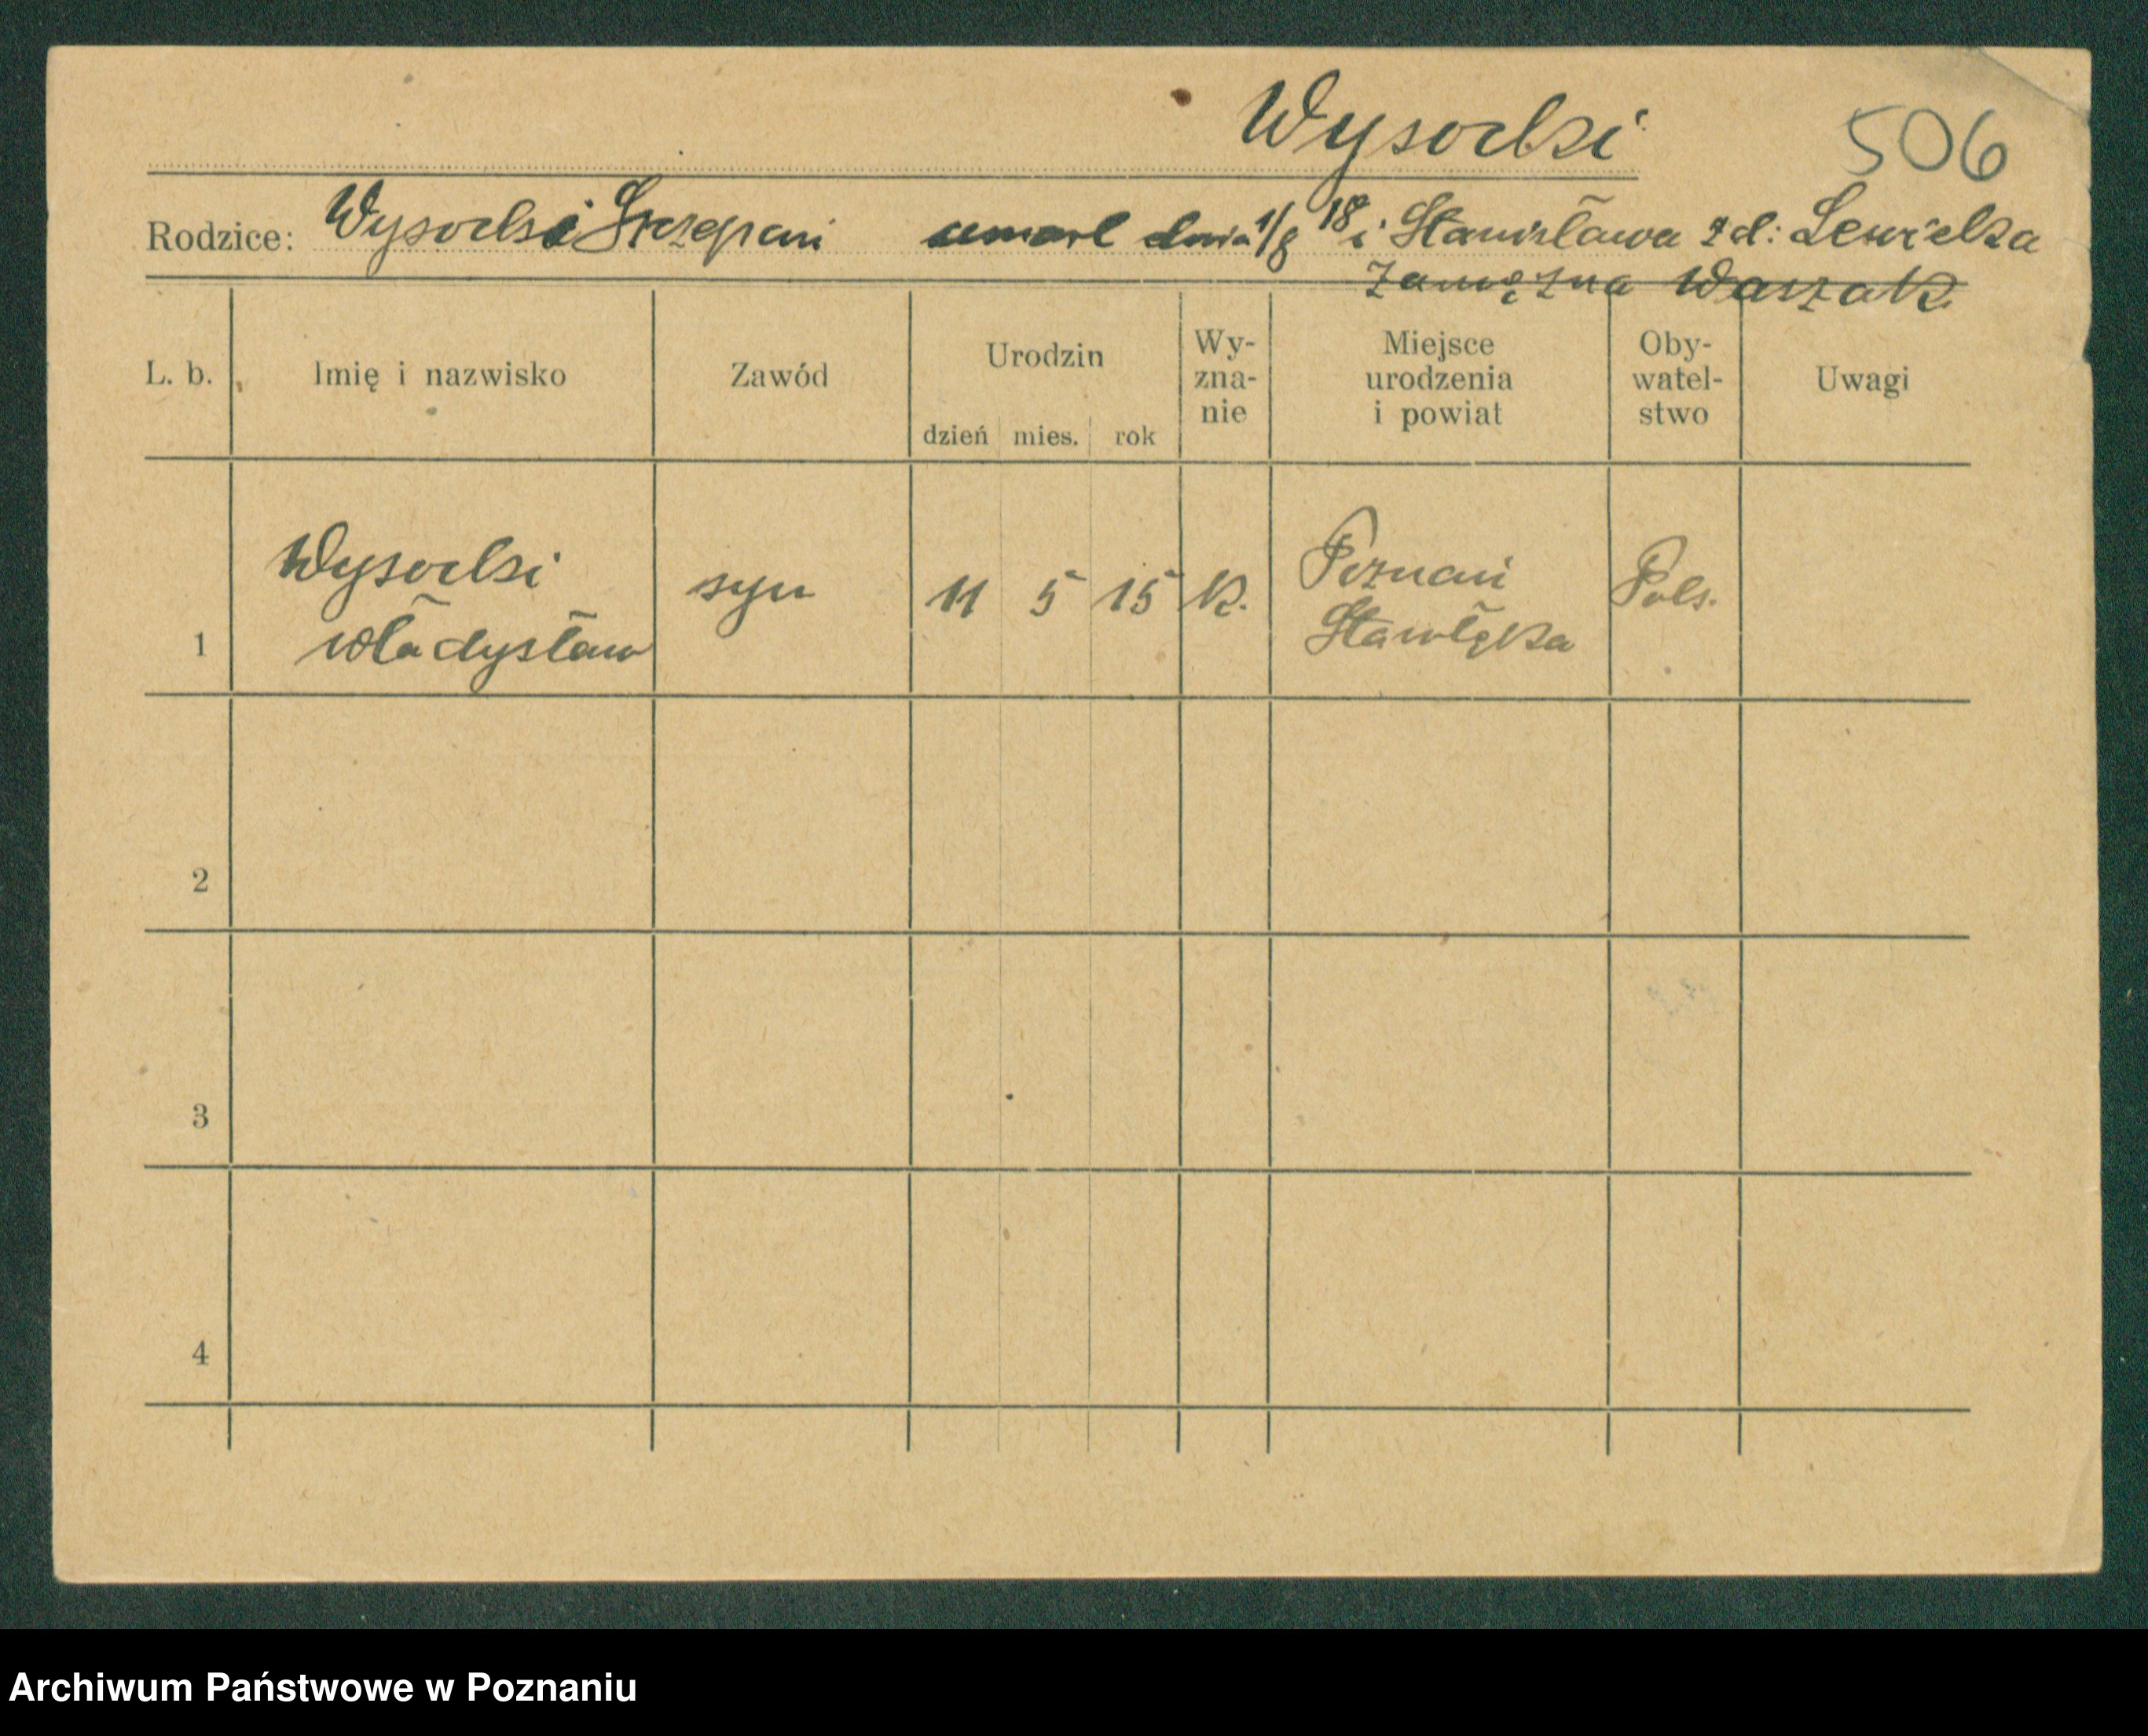 Wysocki
506
Rodzice: Wysocki Szczepan umarł dnia 1/8 18 i Stanisława zd: Lewicka
zamężna Waszak
L. b. Imię i nazwisko Zawód Urodzin dzień mies. rok Wy-zna-nie Miejsce urodzenia i powiat Oby-watel-stwo Uwagi
1 Wysocki Władysław syn 11 5 15 k. Poznań Pols.
2
3
4
Archiwum Państwowe w Poznaniu